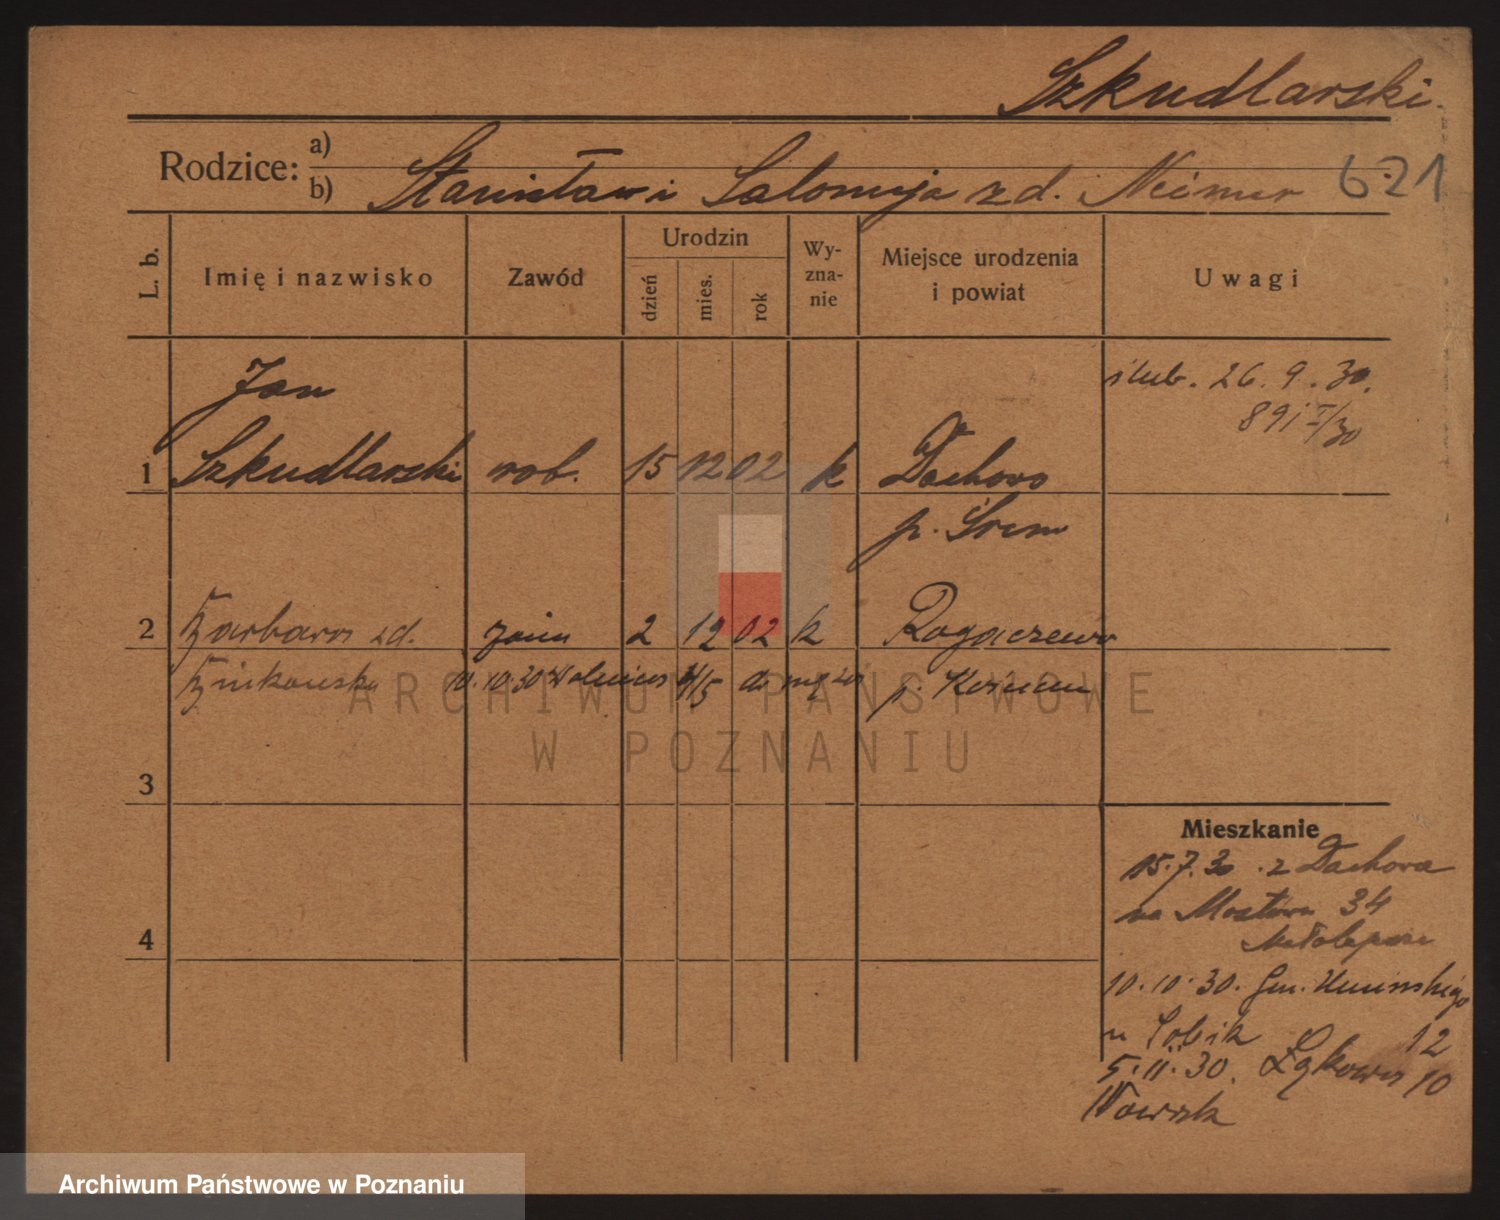 Szkudlarski
Rodzice: a)
b) Stanisław i Salomeja z d. Neimer
621
L. b.
Imię i nazwisko
Zawód
Urodzin
dzień
mies.
rok
Wy-
zna-
nie
Miejsce urodzenia
i powiat
Uwagi
Jan
ślub. 26. 9. 30.
891 I/30
1 Szkudlarski rob. 15 12 02 k Dachowo
p. Śrem
2 Barbara z d. 2 12 02 k Rogaczewo
10.10.30 Wolnica 4/5 do męża
ARCHIWUM PAŃSTWOWE
W POZNANIU
3
4
Mieszkanie
15.7.30 z Dachowa
na Mostowa 34
10.10.30. Gen. Umińskiego
u Sobik 12
5.11.30. Łąkowa 10
Nowrk
Archiwum Państwowe w Poznaniu